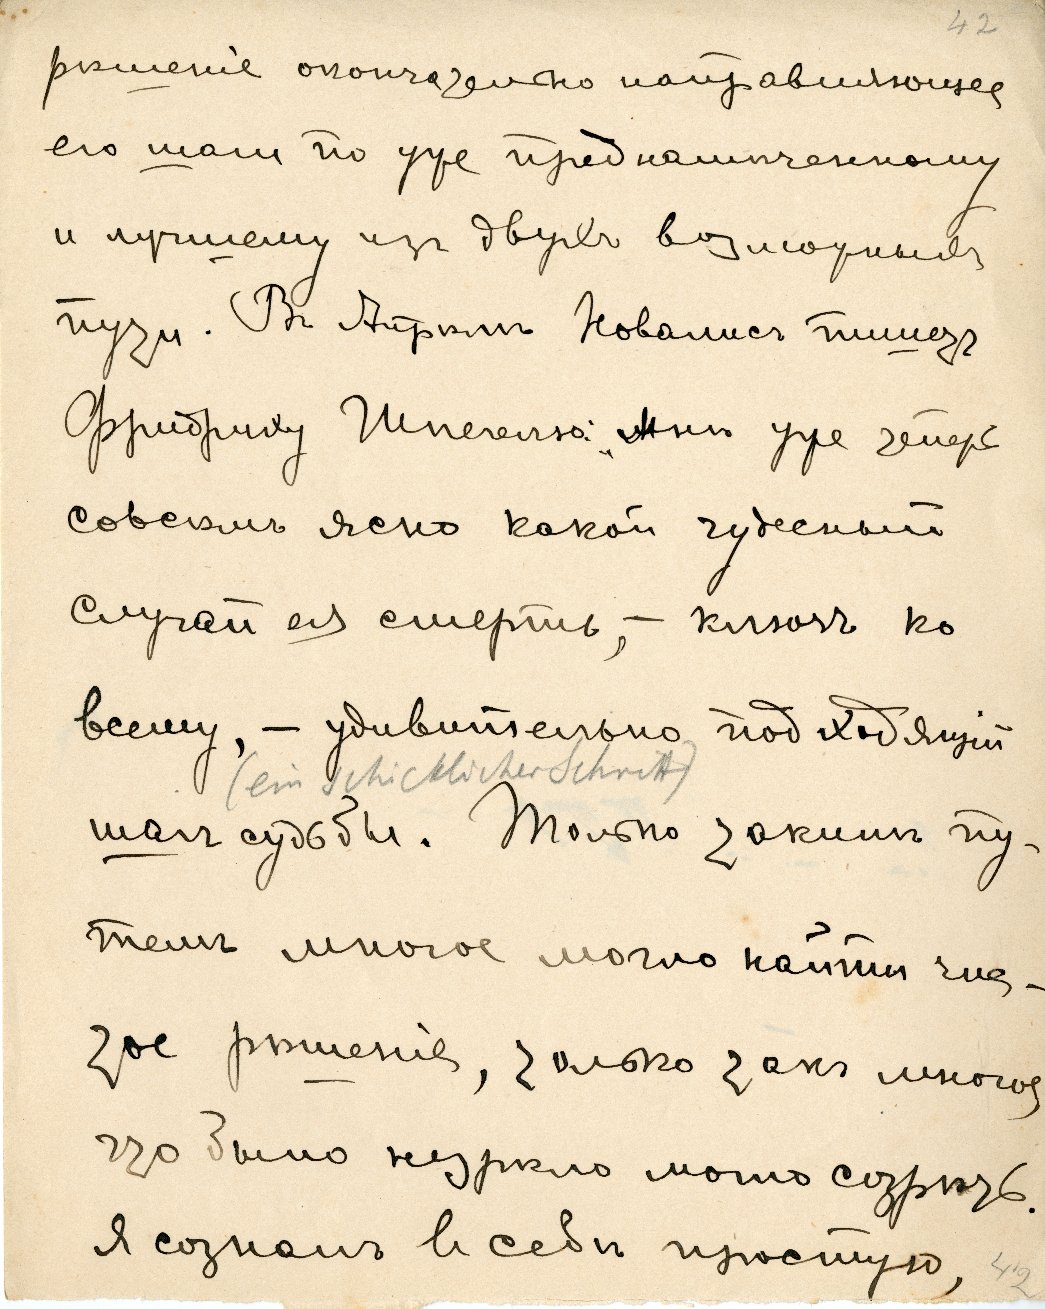 42
рѣшеніе окончательно направляющее
его шаги по уже предначипченному
и лучшему изъ двухъ возможныхъ
пути. Въ Апрѣлѣ Новалисъ пишетъ
Фридриху Шлегелю: „Мнѣ уже теперь
совсѣмъ ясно какой чудесный
случай ея смерть, – ключъ ко
всему, – удивительно подходящій
(ein schicklicher Schritt)
шагъ судьбы. Только такимъ пу-
темъ многое могло найти чис-
тое рѣшеніе, только такъ многое
что было незрѣло могло созрѣть.
Я созналъ въ себѣ простую,
42